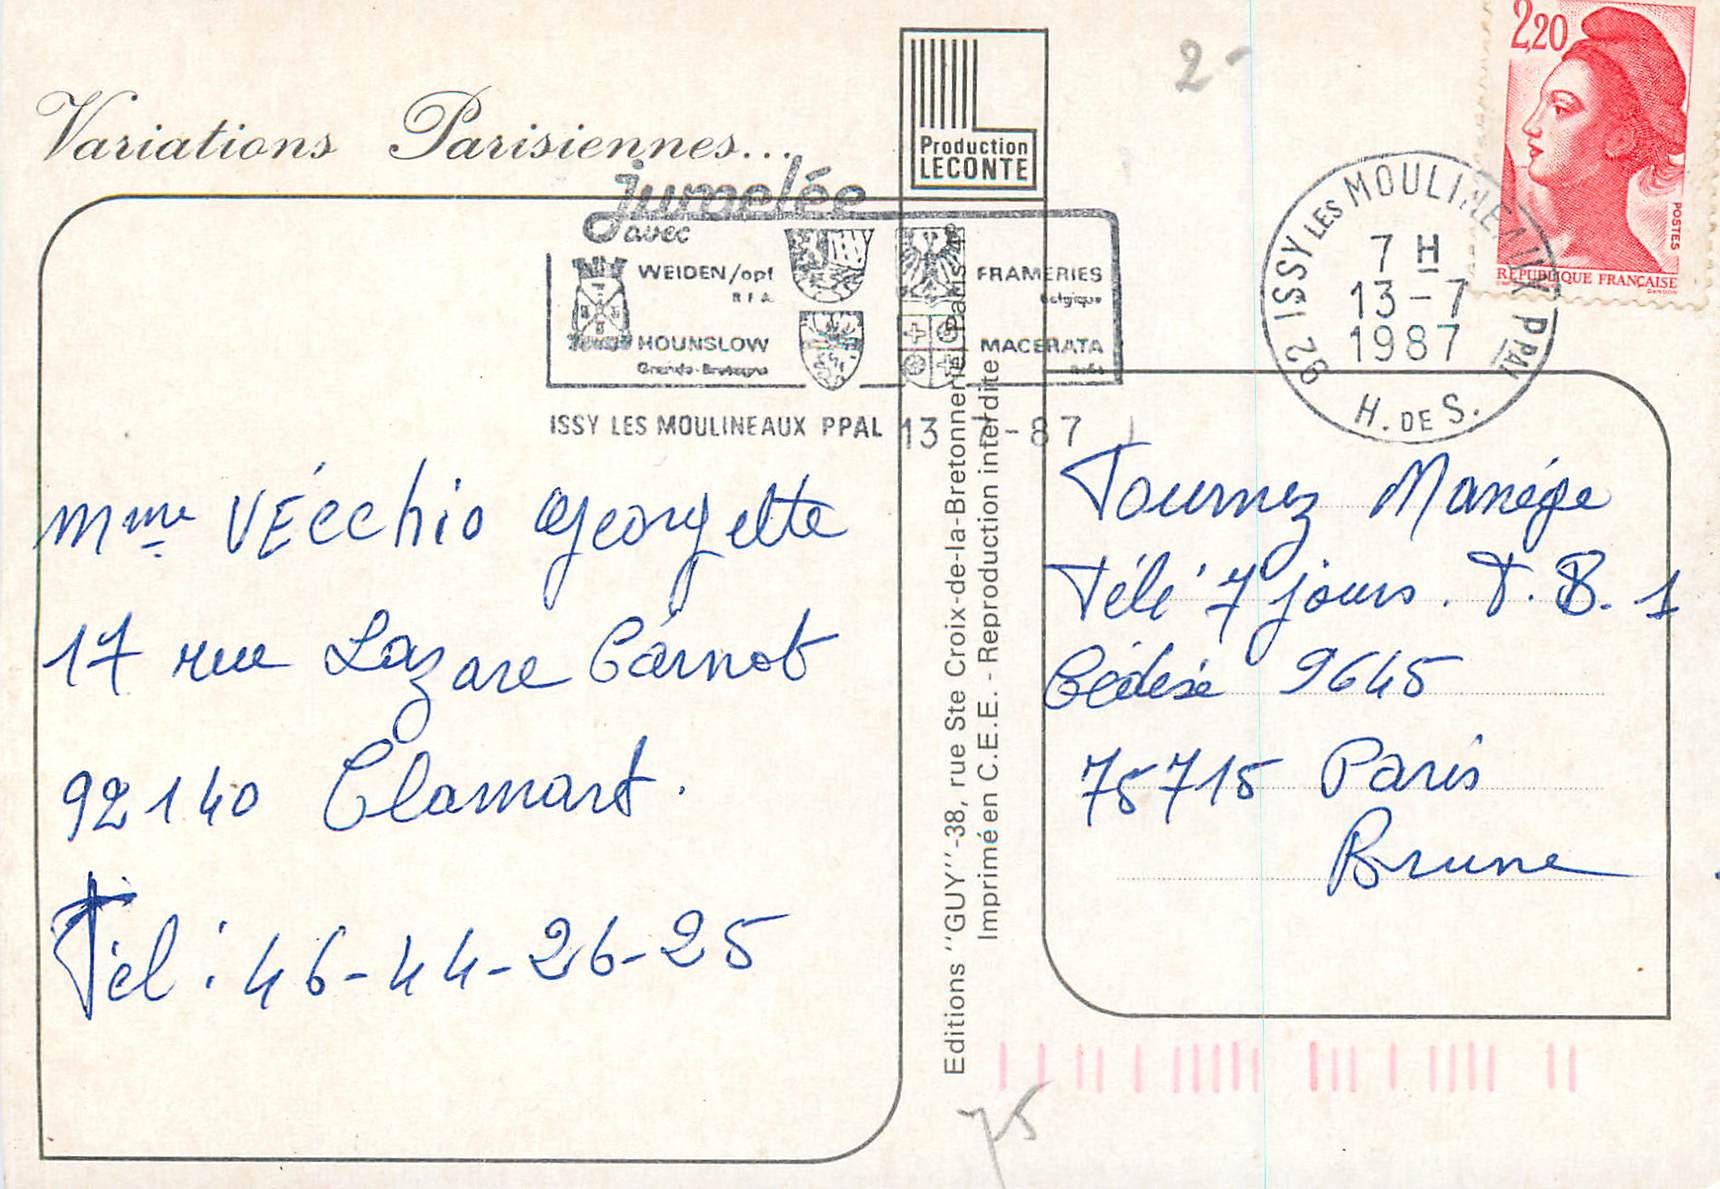 Variations Parisiennes...
Production
LECONTE
2-
2,20
POSTES
REPUBLIQUE FRANÇAISE
jumelée
avec
WEIDEN/opf
R F A
FRAMERIES
Belgique
HOUNSLOW
Grande-Bretagne
MACERATA
ISSY LES MOULINEAUX PPAL 13-7-87
92 ISSY LES MOULINEAUX PPAL
7 H
13-7
1987
H. DE S.
Mme VÉcchio Georgette
17 rue Lazare Carnot
92140 Clamart.
Tel : 46-44-26-25
Editions "GUY"-38, rue Ste Croix-de-la-Bretonnerie Paris 4e
Imprimé en C.E.E. - Reproduction interdite
Tournez Manége
Télé 7 jours. T.B. 1
Cédéx 9645
75715 Paris
Brune
75